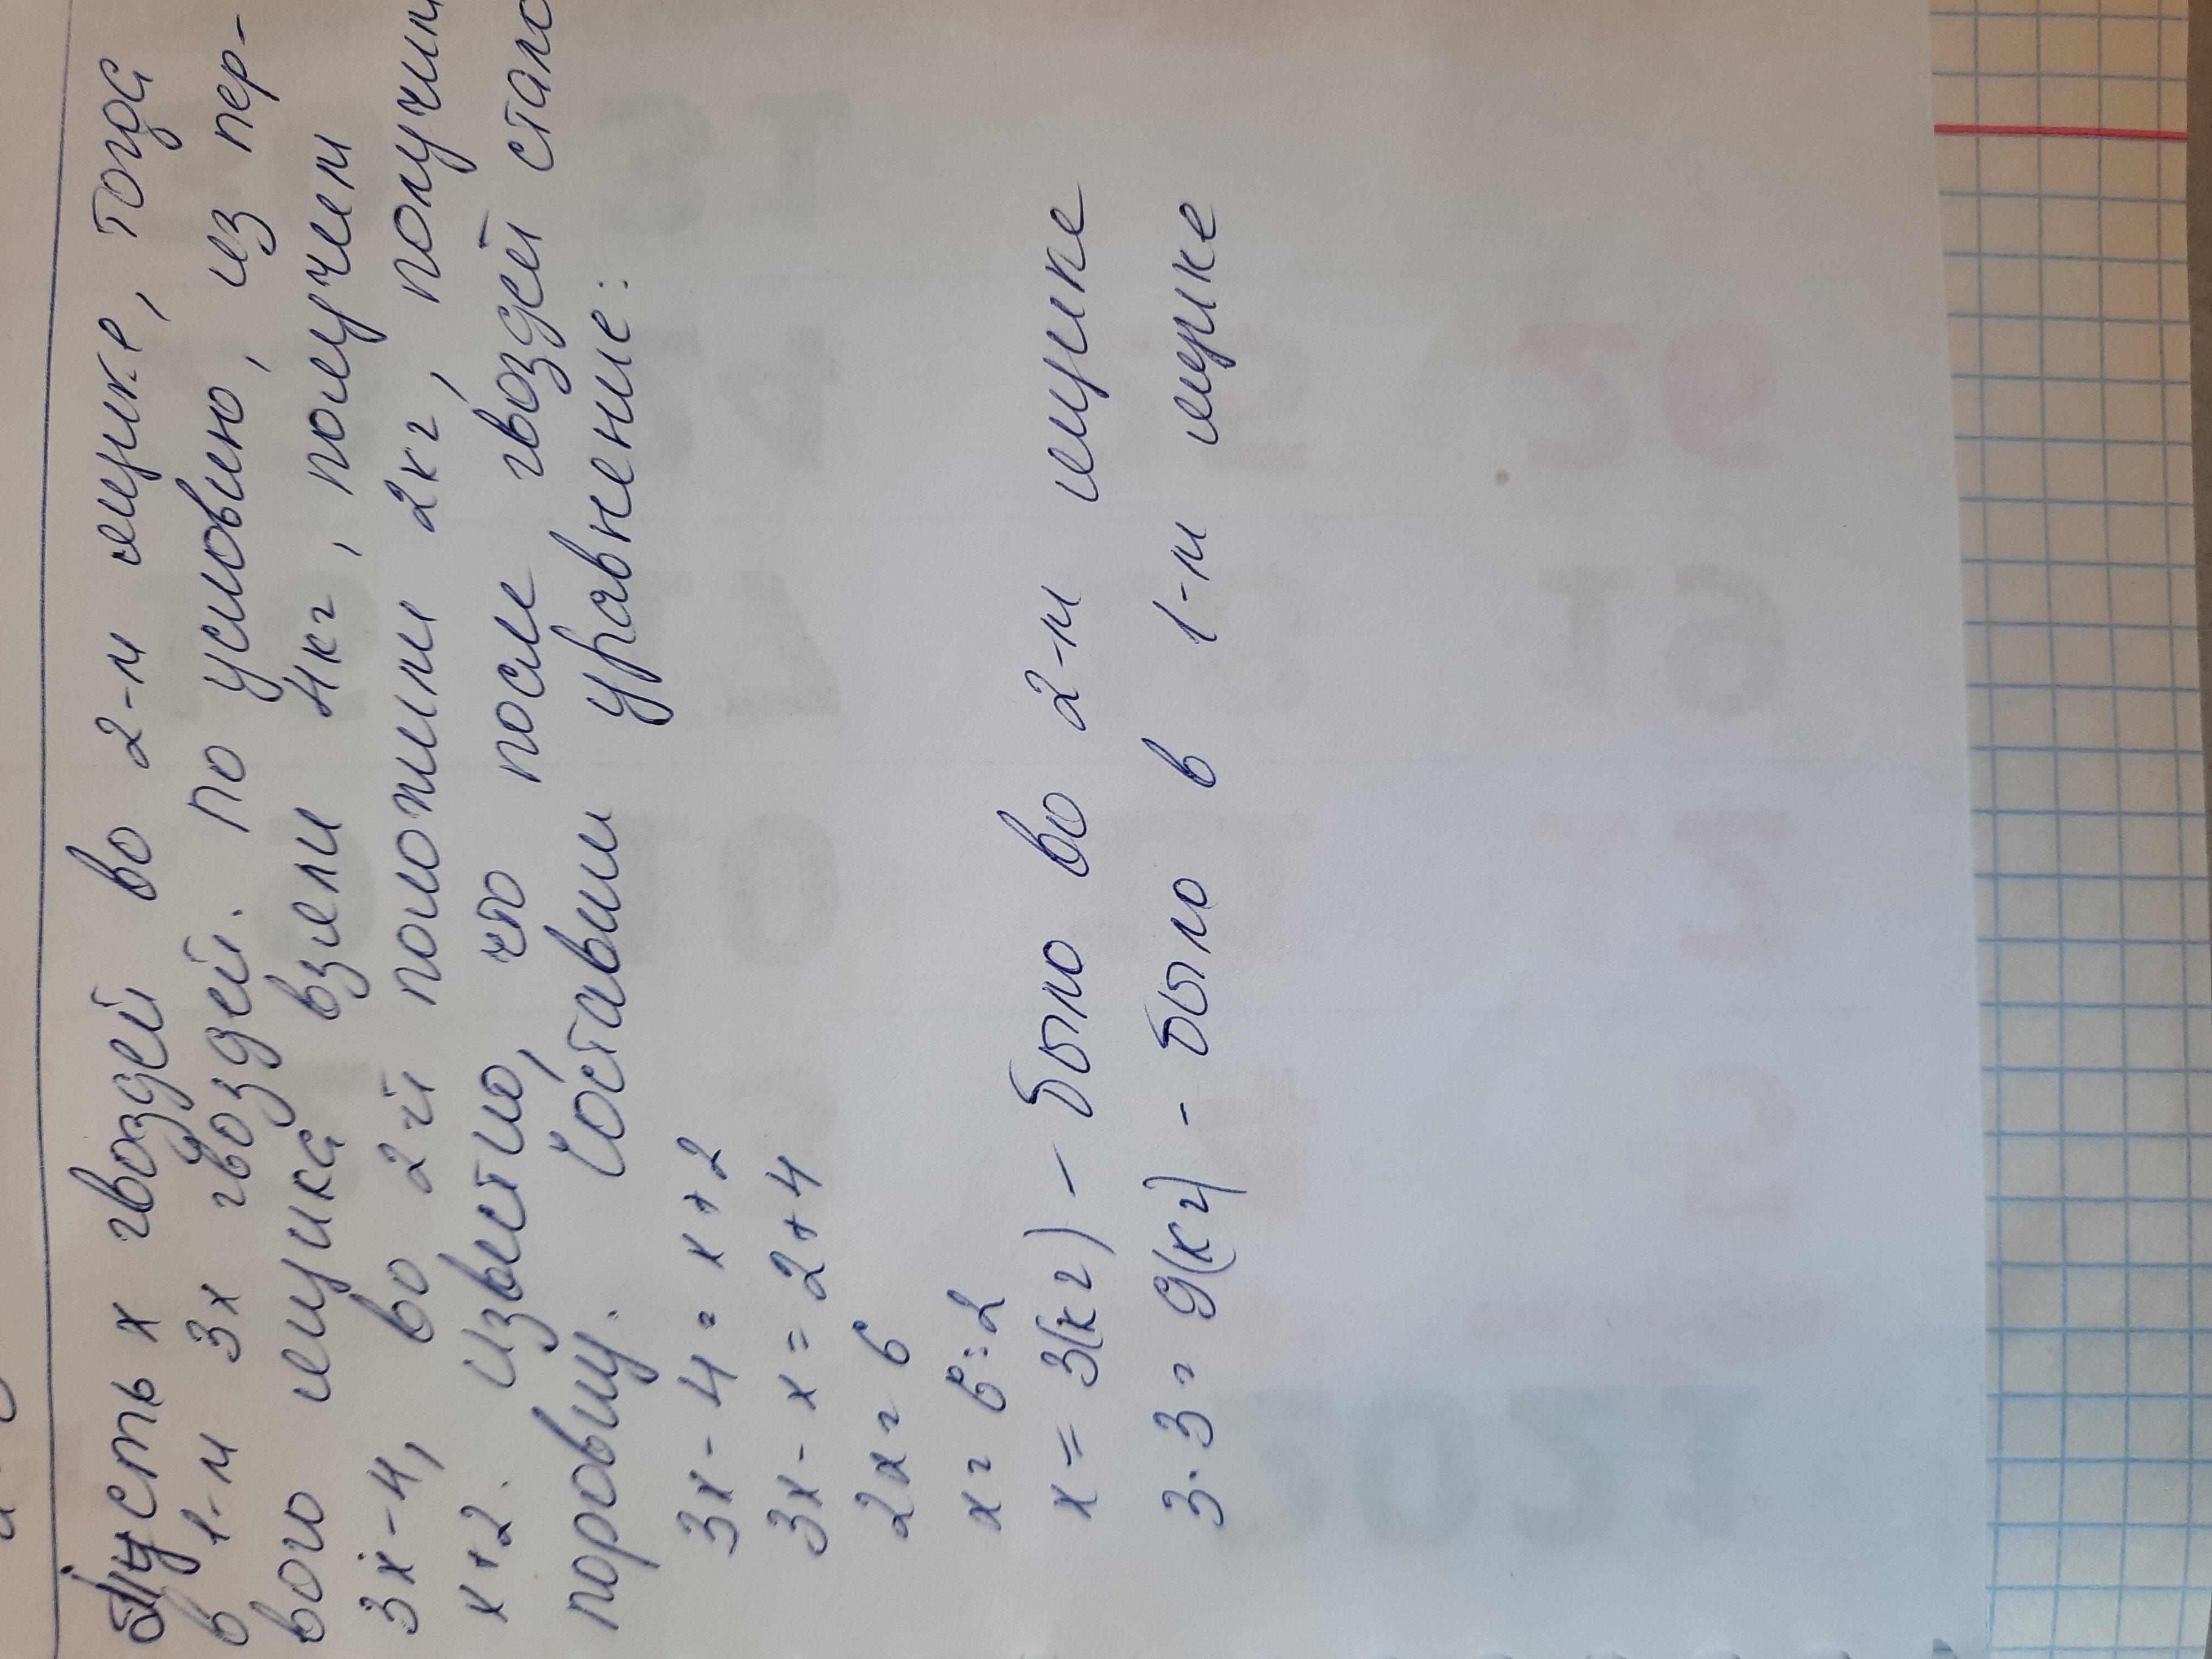 Пусть х гвоздей во 2-м ящике, тогда
в 1-м 3х гвоздей. По условию, из пер-
вого ящика взяли 4кг, получем
3х-4, во 2-й положили 2кг, получим
х+2. Известно, что после гвоздей стало
поровну. Составим уравнение:
3х-4=х+2
3х-х=2+4
2х=6
х=6:2
х=3(кг) - было во 2-м ящике
3·3=9(кг) - было в 1-м ящике